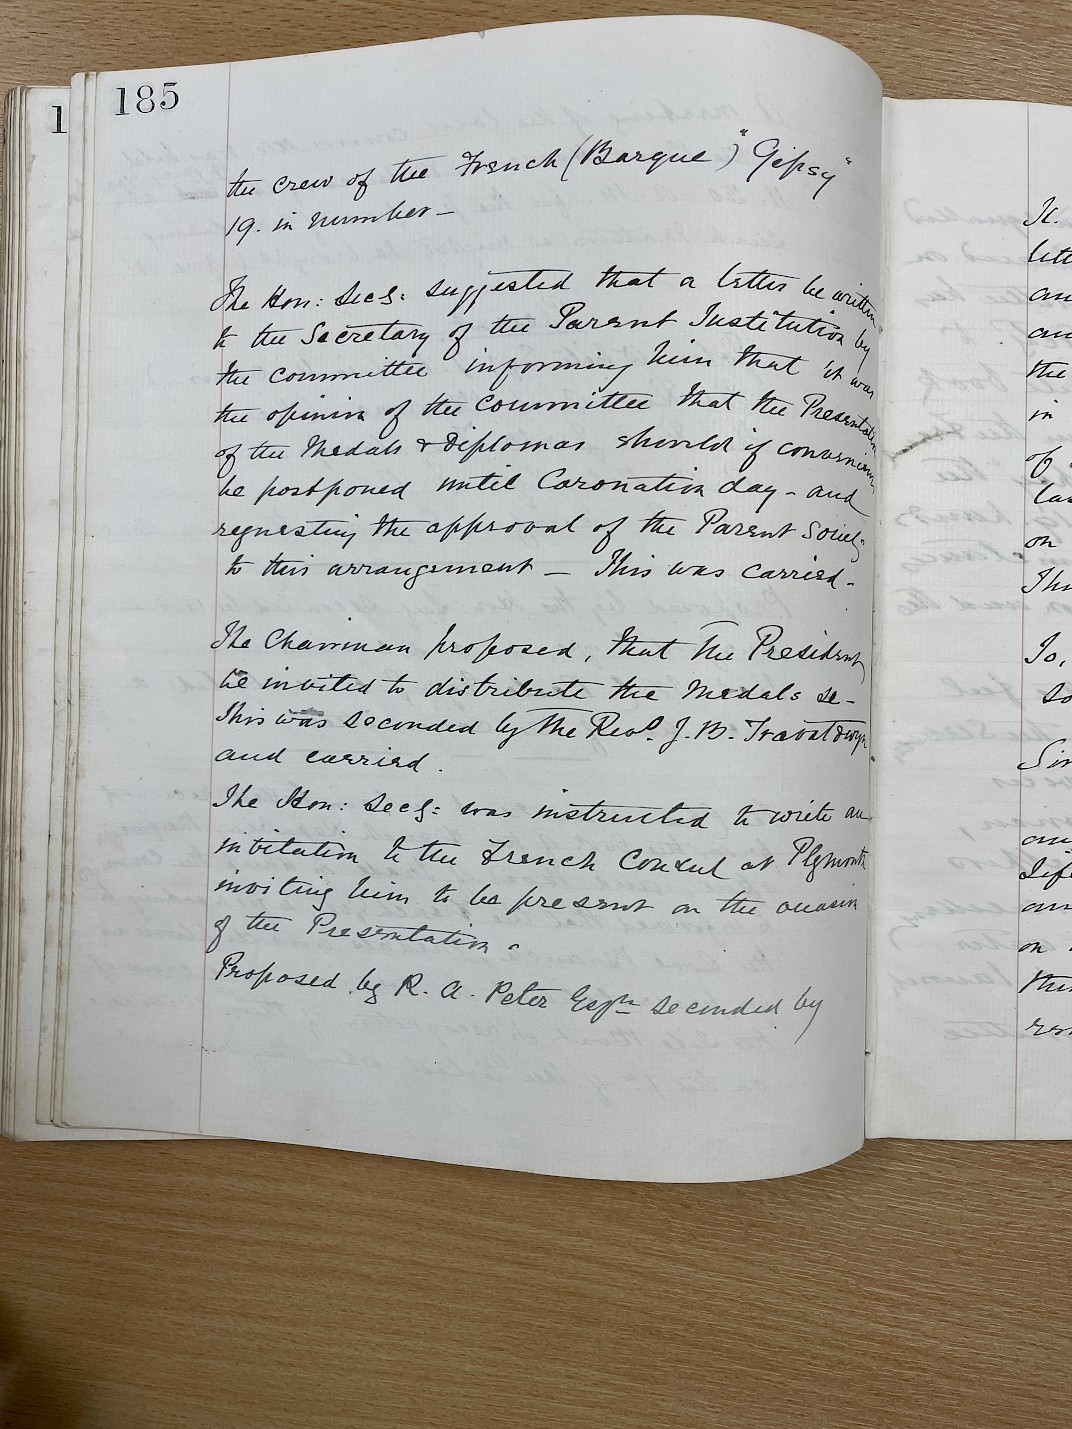 185
1
the crew of the French (Barque) "Gipsy"
19. in number -
The Hon: Secy: suggested that a letter be written
to the Secretary of the Parent Institution by
the committee informing him that it was
the opinion of the committee that the Presentation
of the Medals & Diplomas should if convenient
be postponed until Coronation day - and
requesting the approval of the Parent Society
to this arrangement - This was carried -
The Chairman proposed, that The President
be invited to distribute the Medals &c -
This was seconded by the Revd. J. B.
and carried.
The Hon: Secy: was instructed to write an
invitation to the French Consul at Plymouth
inviting him to be present on the occasion
of the Presentation.
Proposed by R. A. Peter Esqre seconded by
It.
the
in
of
on
To,
on